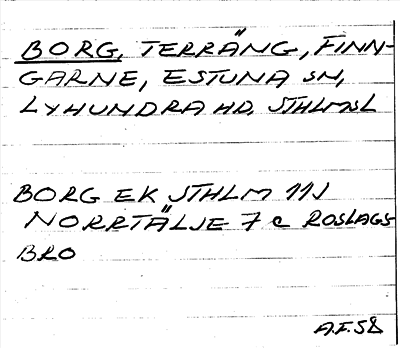 BORG, TERRÄNG, FINN-
GARNE, ESTUNA SN,
LYHUNDRA HD, STHLMSL
BORG EK STHLM 11J
NORRTÄLJE 7 c ROSLAGS
BRO
A.F. 58